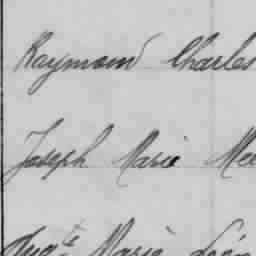 Raymond Charles
Joseph Marie Me
Augte Marie Léon